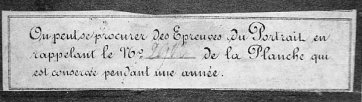 On peut se procurer des Epreuves du Portrait en
rappelant le Nº de la Planche qui
est conservée pendant une année.